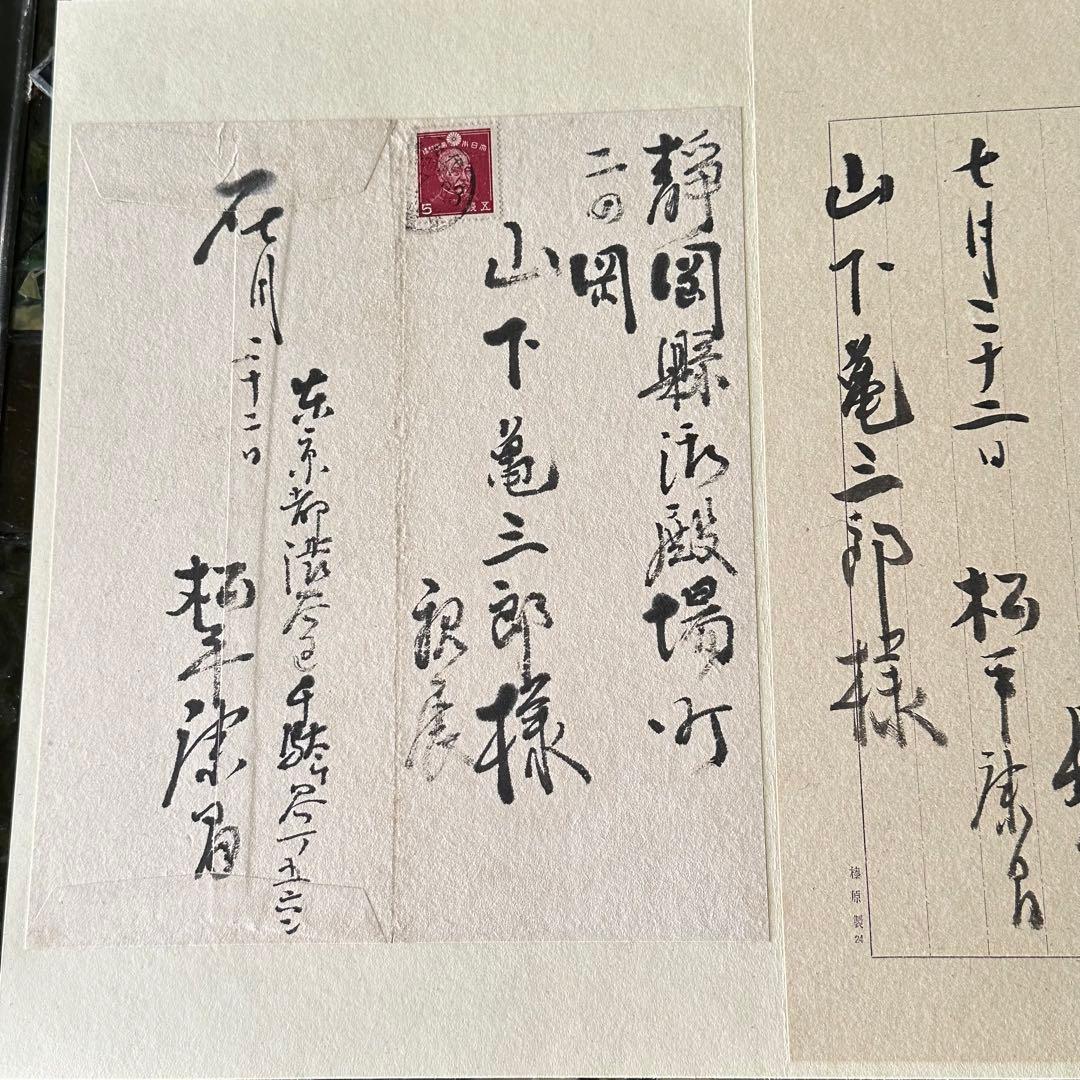 七月二十二日
松平康昌
山下亀三郎様
榛原製
24
静岡縣御殿場町
二の岡
山下亀三郎様
親展
大日本帝國郵便
5 銭 五
東京都渋谷区千駄ヶ谷一ノ五六二
七月二十二日
松平康昌